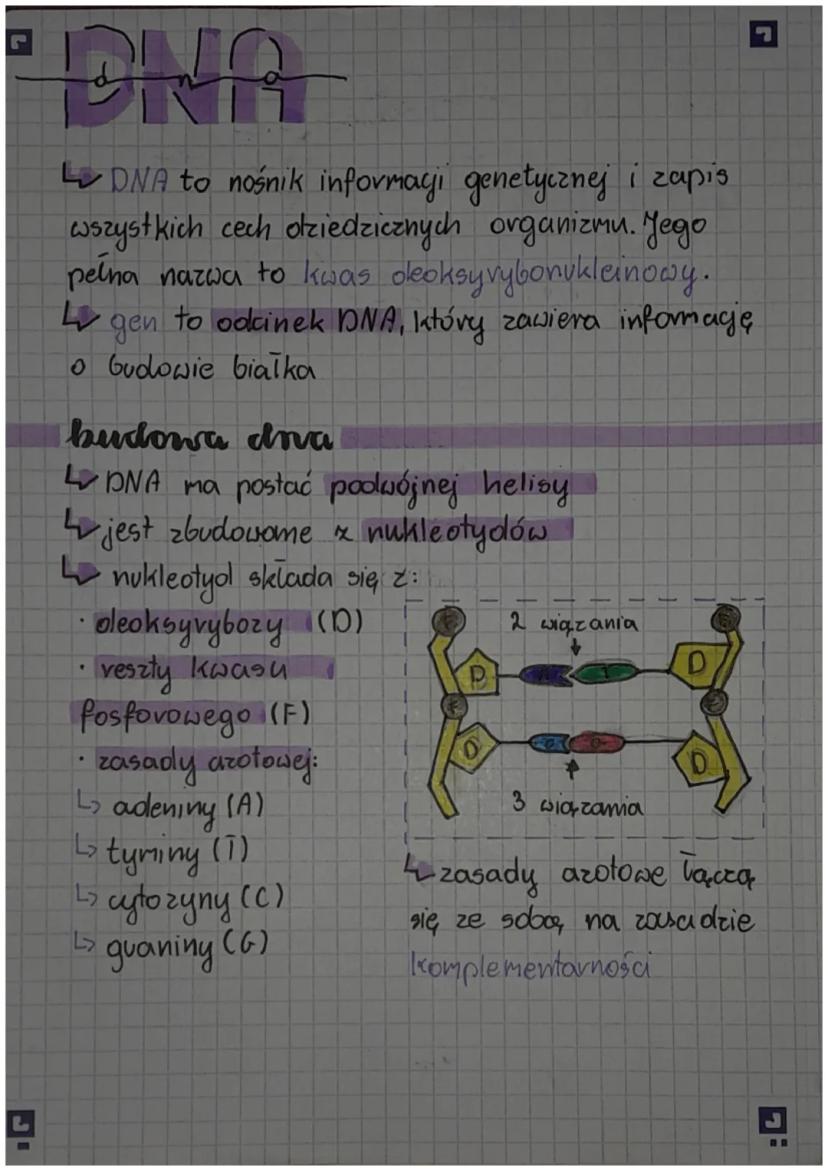 DNA
dna
↳ DNA to nośnik informacji genetycznej i zapis
wszystkich cech dziedzicznych organizmu. Jego
pełna nazwa to kwas deoksyrybonukleinowy.
↳ gen to odcinek DNA, który zawiera informację
o budowie białka
budowa dna
↳ DNA ma postać podwójnej helisy
↳ jest zbudowane z nukleotydów
↳ nukleotyd składa się z:
· deoksyrybozy (D)
· reszty kwasu
fosforowego (F)
· zasady azotowej:
↳ adeniny (A)
↳ tyminy (T)
↳ cytozyny (C)
↳ guaniny (G)
2 wiązania
F
D
T
D
F
F
D
C
G
D
3 wiązania
↳ zasady azotowe łączą
się ze sobą na zasadzie
komplementarności